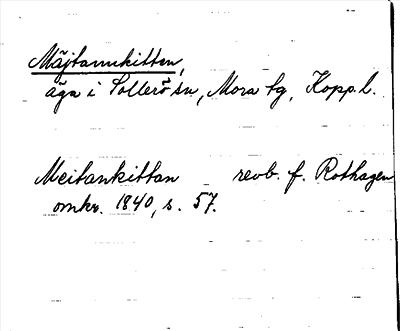 Mäjtannkitten,
äga i Sollerö sn, Mora tg, Kopp. l.
Meitankittan revb. f. Rothagen
omkr. 1840, s. 57.